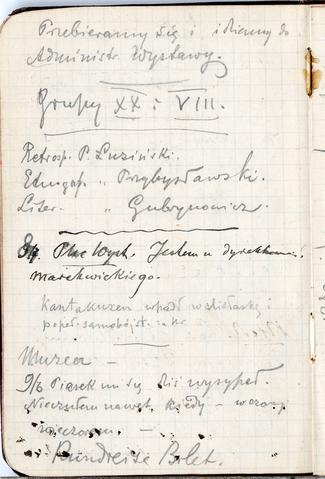 Przebieramy się i idziemy do
Administr. Wystawy.
Grupy XX i VIII.
Retrosp. P. Łuziński.
Etnograf. " Przybysławski.
Liter. " Gubrynowicz.
Plac Wyst. Jestem u dyrektora
Marchwickiego.
Kantakuzen wpadł w
i
popeł. samobójst.
Muzea —
9/6 Piasek mi się dziś wysypał.
Nieczułem nawet kiedy — wczoraj
wieczorem. —
Rundreise Bilet.